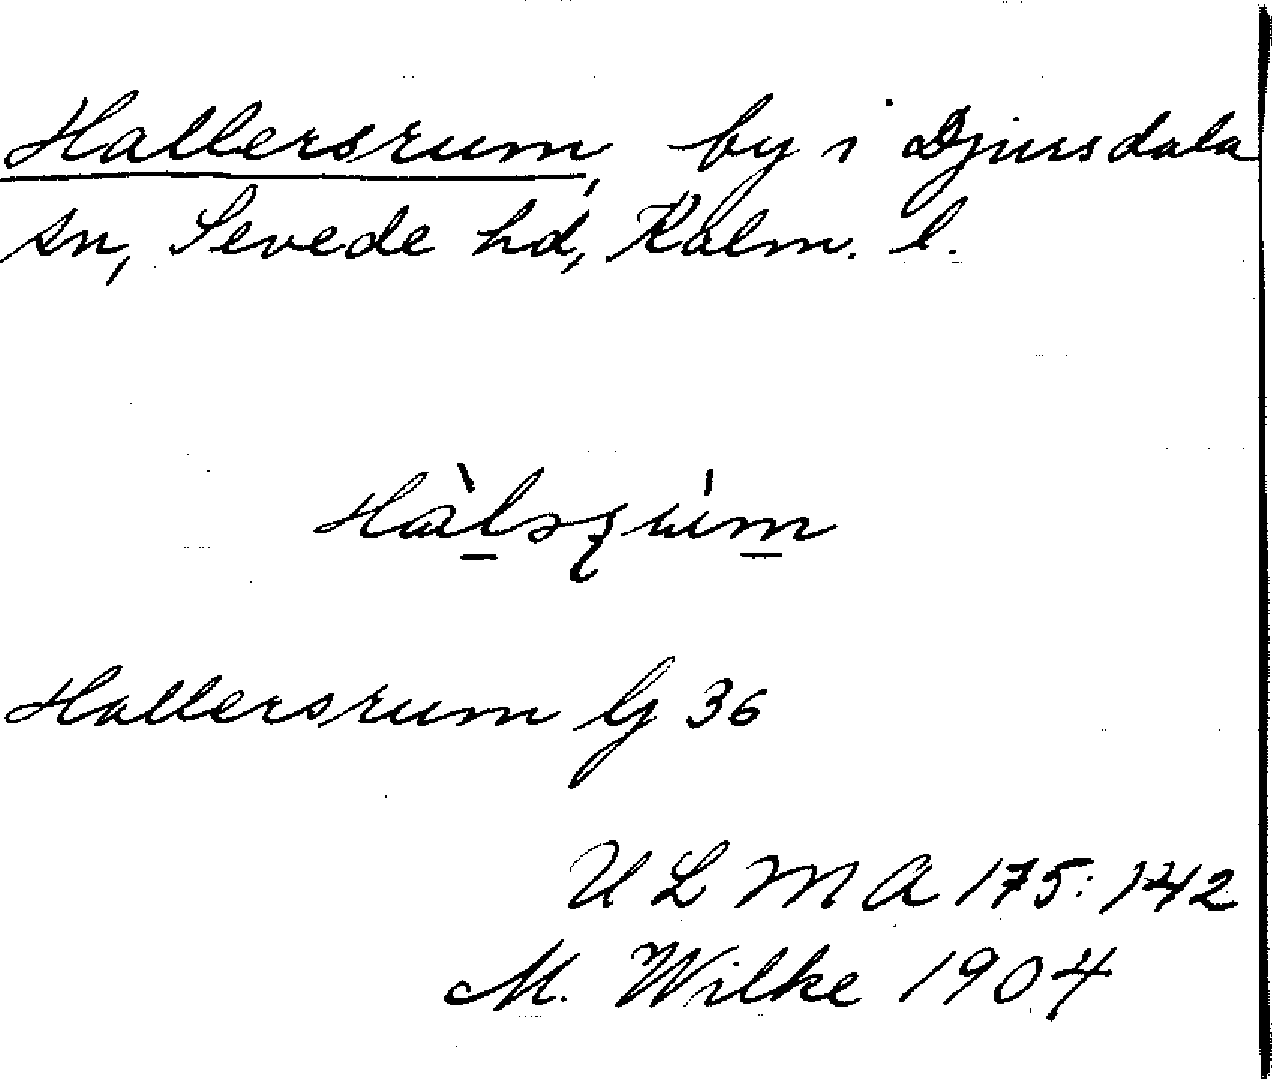 Hallersrum, by i Djursdala
sn, Sevede hd, Kalm. l.
Hallersrum Gj 36
ULMA 175:142
M. Wilke 1904